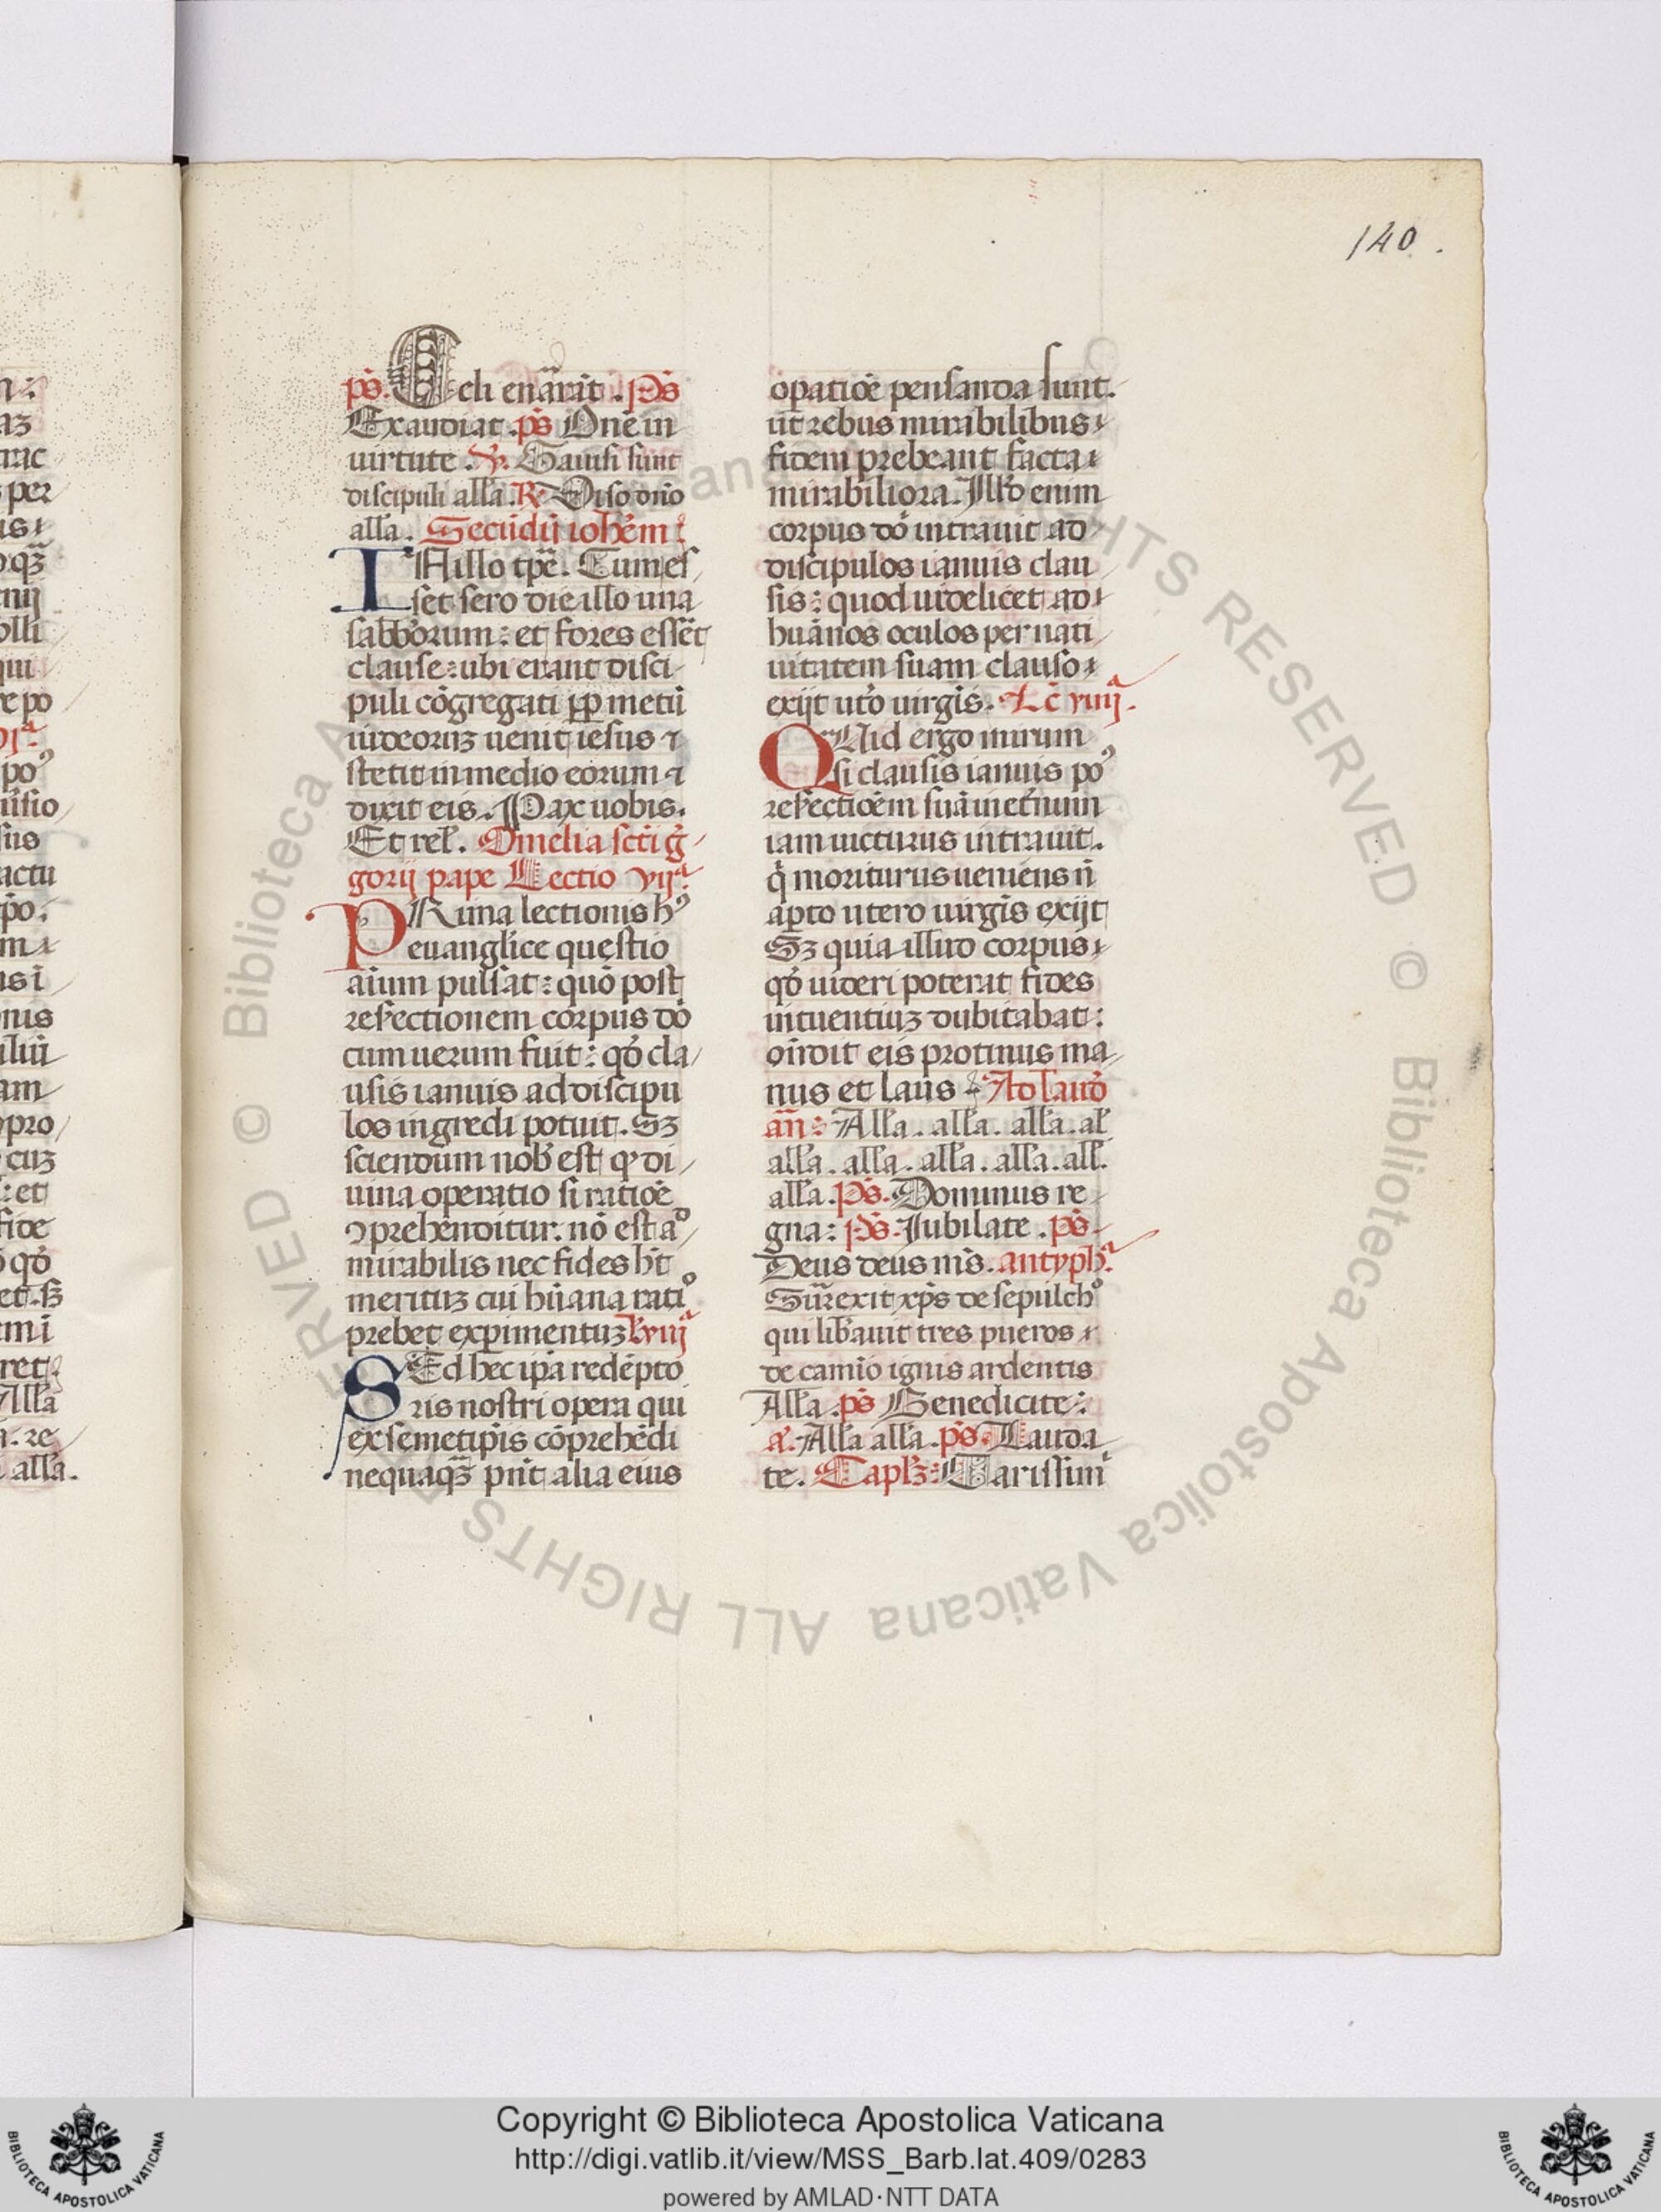 140.
ps. Celi enarrāt. Ps
Exaudiat. ps Dn̄e in
uirtute. ℣. Gauisi sunt
discipuli all'a. ℟ Uiso dn̄o
all'a. Secūdū ioh̄em
IN illo tp̄e. Cum es
set sero die illo una
sabb'orum: et fores essēt
clause: ubi erant disci
puli cōgregati ꝓp̄ metū
iudeoruꝫ uenit iesus ⁊
stetit in medio eorum ⁊
dixit eis. Pax uobis.
Et rel'. Omelia sc̄ti g̾
gorij pape Lectio vijᵃ.
PRima lectionis hꝰ
euangl'ice questio
aīum pulsat: quō post
refectionem corpus dō
cum uerum fuit: qd̾ cla
usis ianuis ad discipu
los ingredi potuit. Sꝫ
sciendum nob' est ꝙ di
uina operatio si ratiōe
ꝯprehenditur: nō est a
mirabilis nec fides h̄t
merituꝫ cui hūana ratiº
prebet exꝑimentuꝫ L' viijᵃ
SEd hec ip̄a redēpto
ris nostri opera qui
ex semetip̄is cōprehēdi
nequaqꝫ pn̄t alia eius
oꝑatiōe pensanda sunt.
ut rebus mirabilibus
fidem prebeant facta
mirabiliora. Ill'd enim
corpus dō intrauit ad
discipulos ianuis clau
sis: quod uidelicet ad
huānos oculos per nati
uitatem suam clauso
exijt ut'o uirgīs. Lc̄ viiijᵃ.
QUid ergo mirum
si clausis ianuis poꝰ
refectiōem suā inet'num
iam uicturus intrauit.
q̇ moriturus ueniens n̄
aꝑto utero uirgīs exijt
Sꝫ quia illud corpus
qd̾ uideri poterat fides
intuentiuꝫ dubitabat:
on̄dit eis protinus ma
nus et latus Ad laud'
an̄: All'a. all'a. all'a. al'
all'a. all'a. all'a. all'a. all'.
all'a. Ps. Dominus re
gna: Ps. Jubilate. ps.
Deus deus m̄s. antyph'ᵃ.
Surrexit xp̄s de sepulchº
qui lib'auit tres pueros
de camīo ignis ardentis
All'a. ps Benedicite:
a'. All'a all'a. ps. Lauda
te. Capl'ꝫ: Carissimi
Copyright © Biblioteca Apostolica Vaticana
http://digi.vatlib.it/view/MSS_Barb.lat.409/0283
powered by AMLAD·NTT DATA
BIBLIOTECA APOSTOLICA VATICANA
BIBLIOTECA APOSTOLICA VATICANA